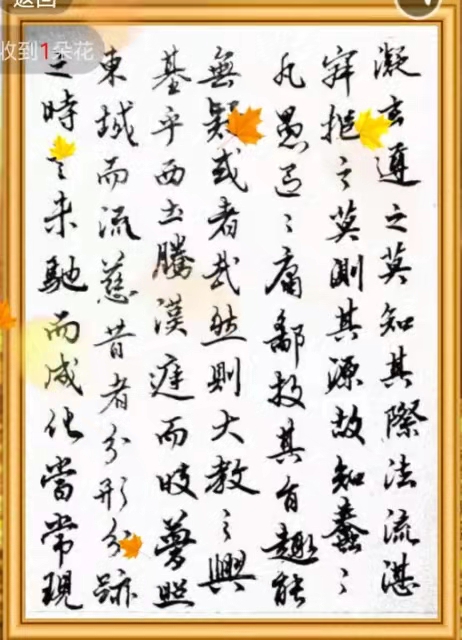 返回
收到1朵花
凝玄遵之莫知其際法流湛
寂挹之莫測其源故知蠢〻
凡愚區〻庸鄙投其旨趣能
無疑或者哉然則大教之興
基乎西土騰漢庭而皎夢照
東域而流慈昔者分形分跡
之時言未馳而成化當常現